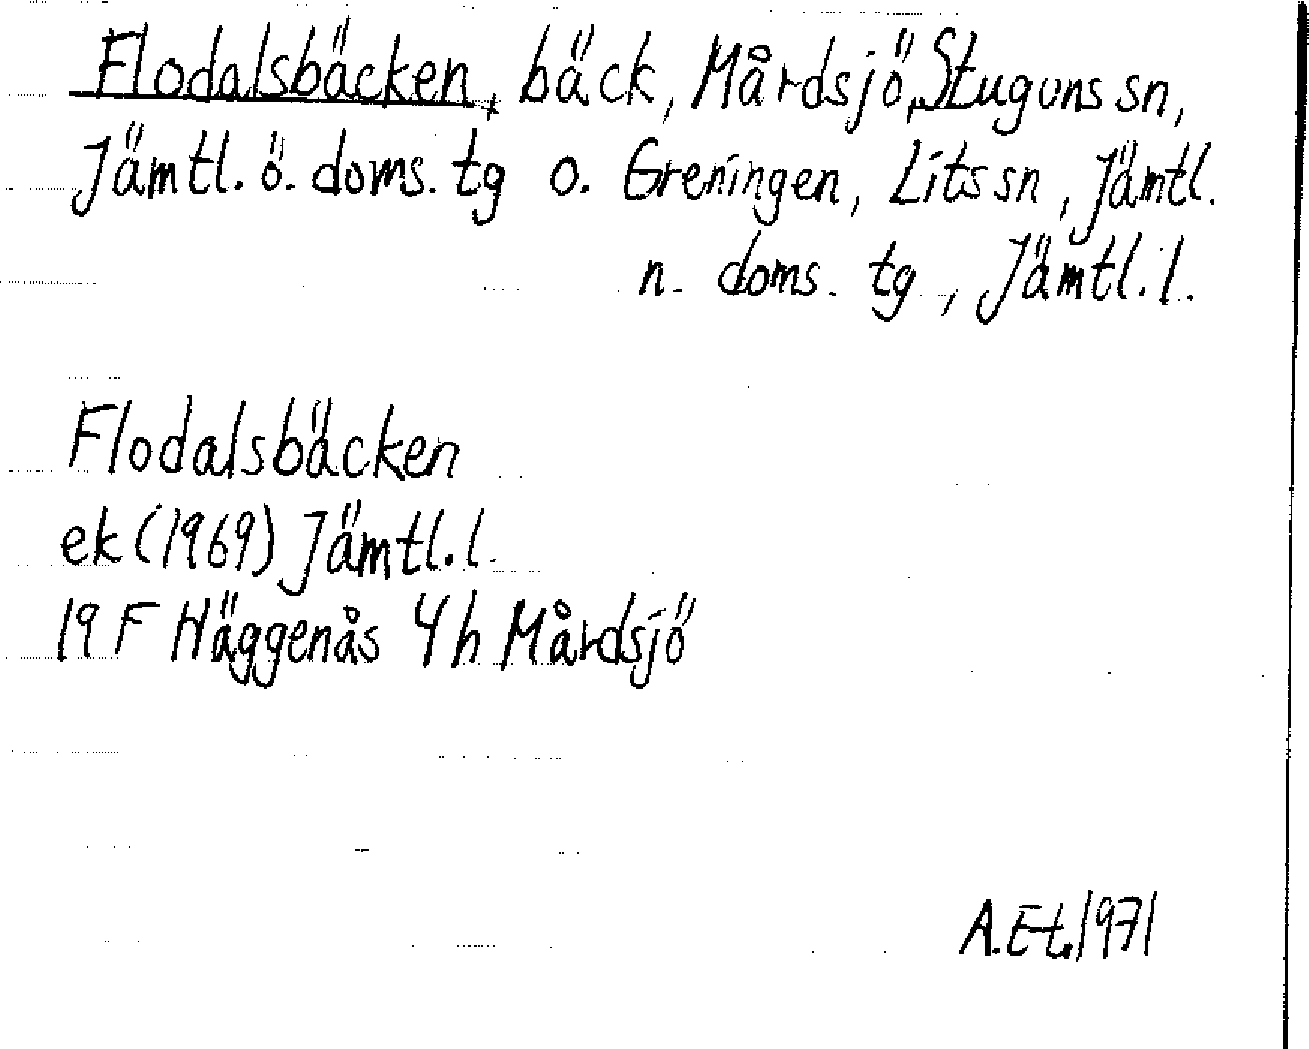 Flodalsbäcken, bäck, Mårdsjö, Stuguns sn,
Jämtl. ö. doms. tg o. Greningen, Lits sn, Jämtl.
n. doms. tg, Jämtl. l.
Flodalsbäcken
ek (1969) Jämtl. l.
19 F Häggenås 4 h Mårdsjö
A. Et. 1971